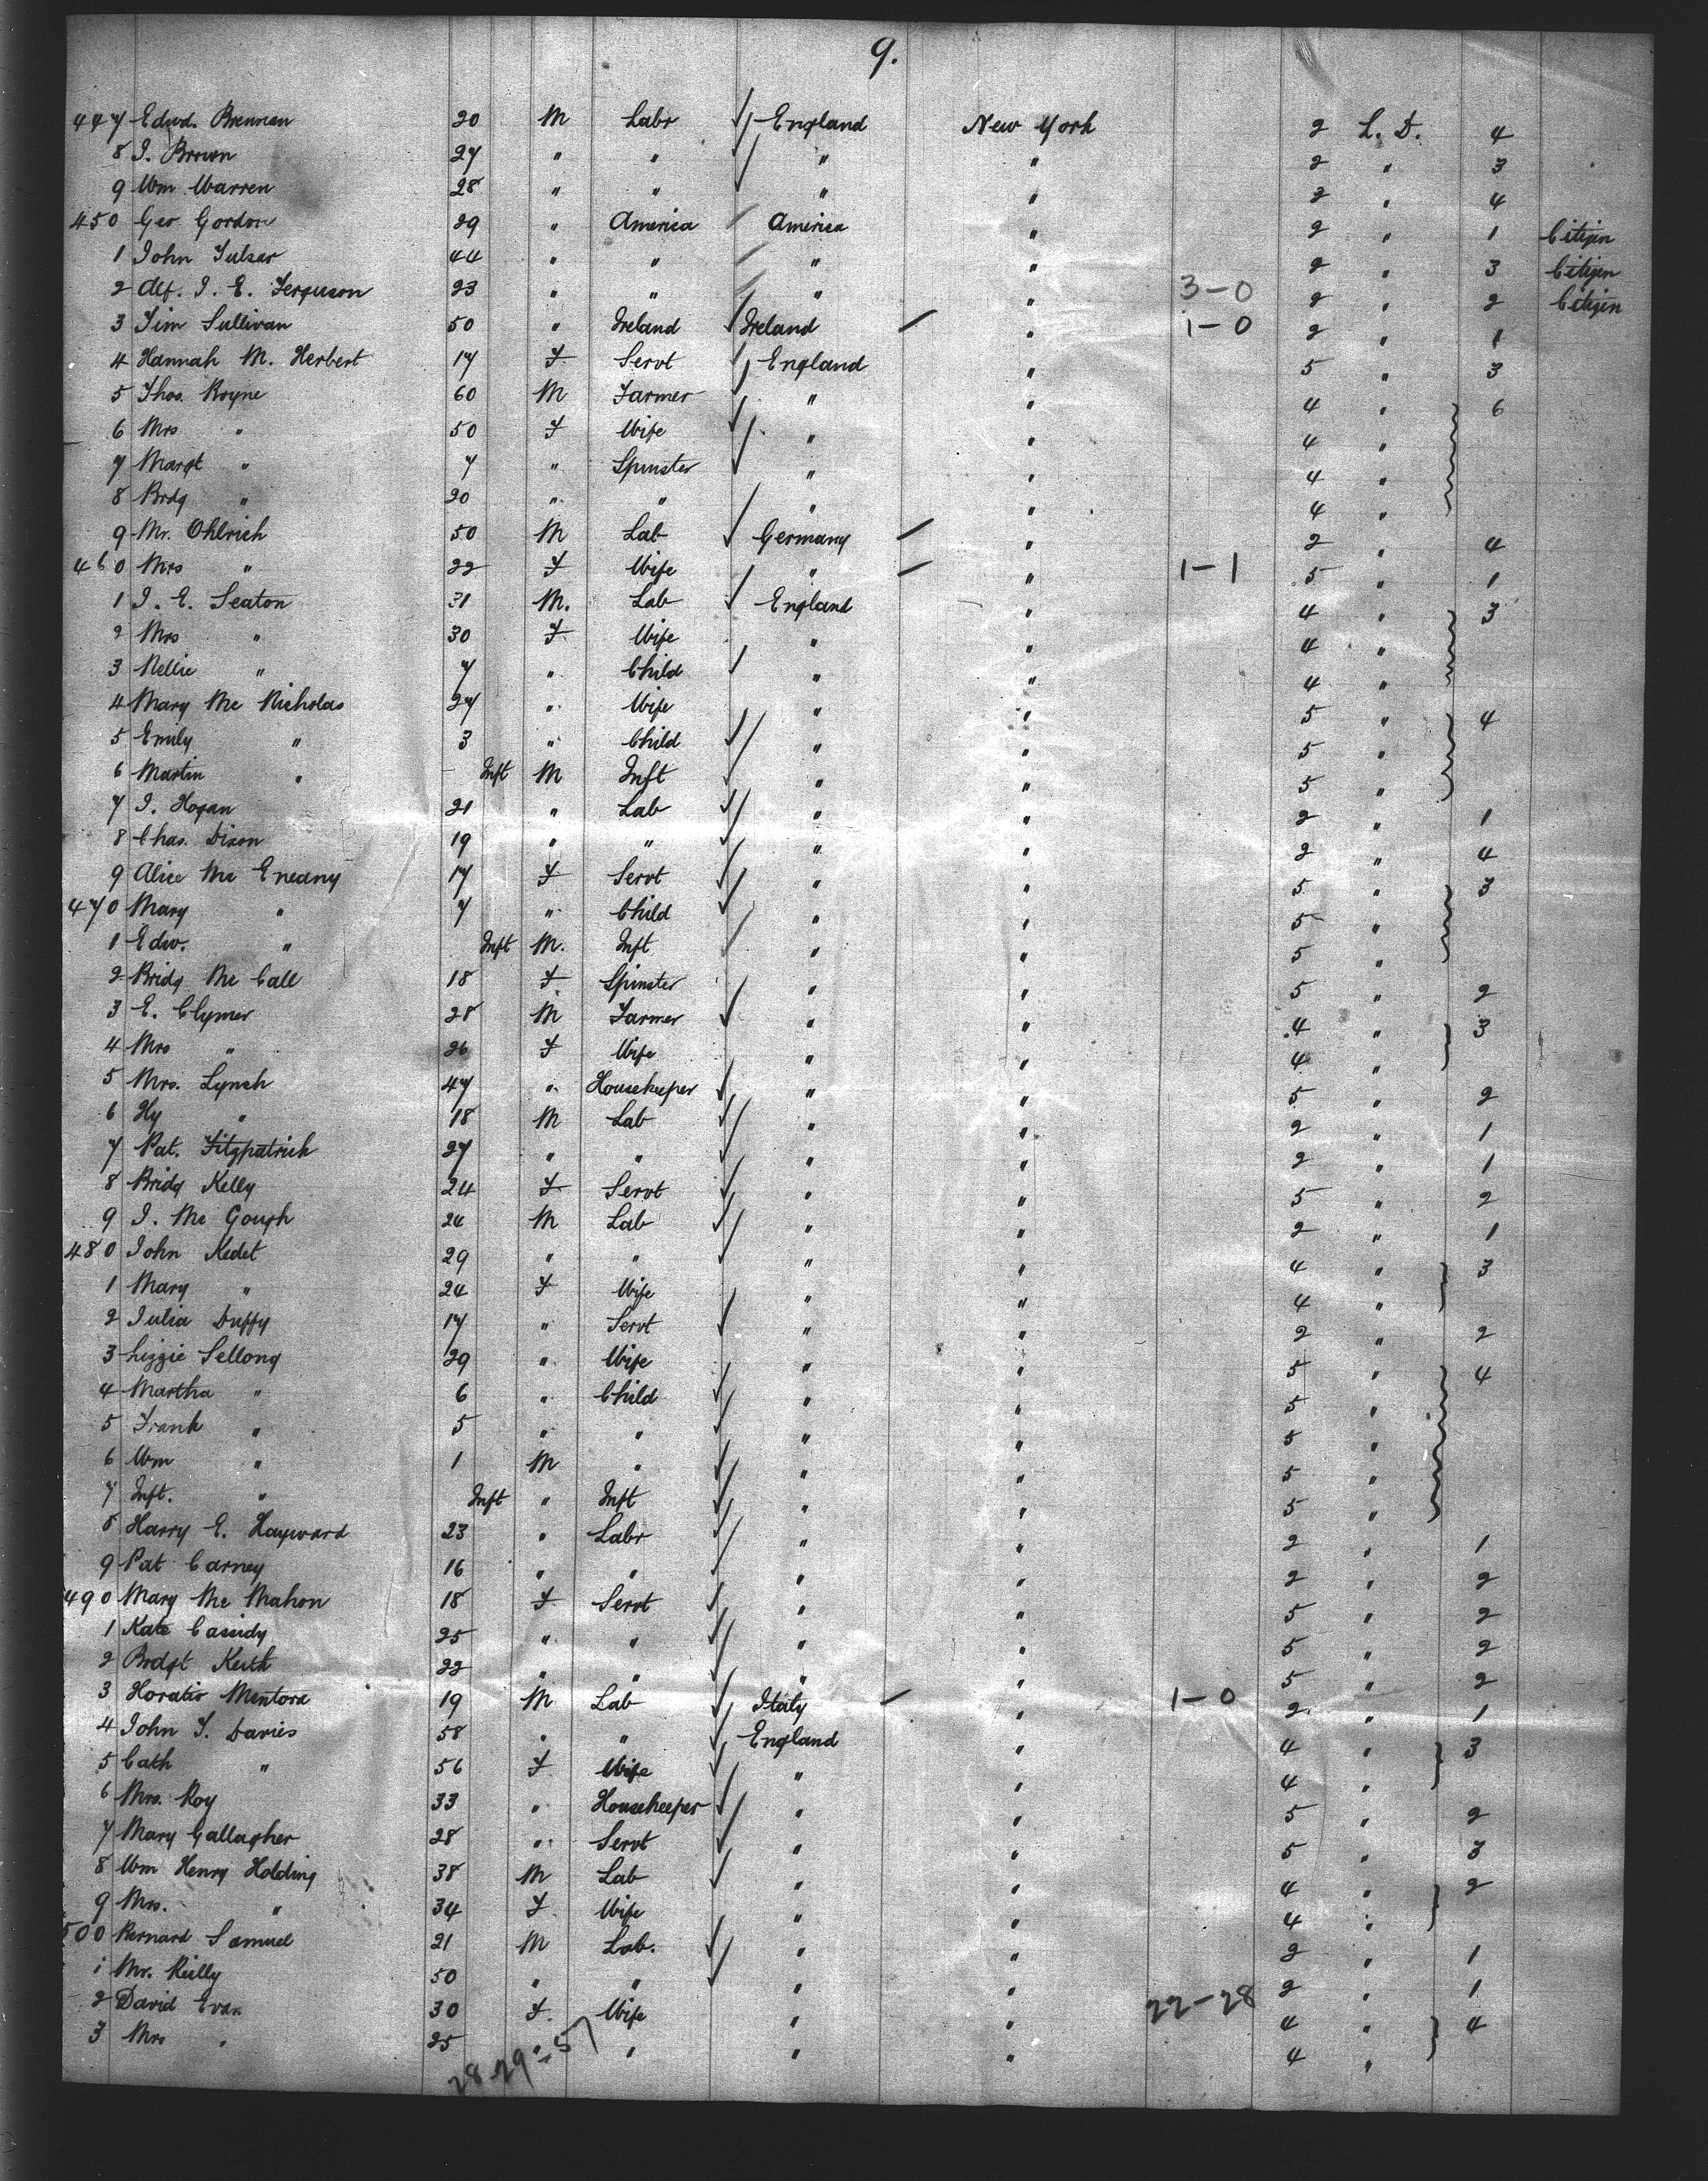 9.
447 Edwd. Brennan 20 M Labr England New York 2 L. D. 4
8 J. Brown 27 " " " " 2 " 3
9 Wm Warren 28 " " " " 2 " 4
450 Geo Gordon 29 " America America " 2 " 1 Citizen
1 John Tulsar 44 " " " " 2 " 3 Citizen
2 Alf. J. E. Ferguson 23 " " " " 3-0 2 " 2 Citizen
3 Tim Sullivan 50 " Ireland Ireland " 1-0 2 " 1
4 Hannah M. Herbert 17 F Servt England " 5 " 3
5 Thos. Royne 60 M Farmer " " 4 " 6
6 Mrs " 50 F Wife " " 4 "
7 Margt " 7 " Spinster " " 4 "
8 Brdg " 20 " " " " 4 "
9 Mr. Ohlrich 50 M Lab Germany " 2 " 4
460 Mrs " 22 F Wife " " 1-1 5 " 1
1 J. E. Seaton 31 M. Lab England " 4 " 3
2 Mrs " 30 F Wife " " 4 "
3 Nellie " 7 " Child " " 4 "
4 Mary Mc Nicholas 27 " Wife " " 5 " 4
5 Emily " 3 " Child " " 5 "
6 Martin " Inft M Inft " " 5 "
7 J. Hogan 21 " Lab " " 2 " 1
8 Chas. Dixon 19 " " " " 2 " 4
9 Alice Mc Eneany 17 F Servt " " 5 " 3
470 Mary " 7 " Child " " 5 "
1 Edw. " Inft M. Inft " " 5 "
2 Bridg Mc Call 18 F Spinster " " 5 " 2
3 E. Clymer 28 M Farmer " " 4 " 3
4 Mrs " 26 F Wife " " 4 "
5 Mrs. Lynch 47 " Housekeeper " " 5 " 2
6 Hy " 18 M Lab " " 2 " 1
7 Pat. Fitzpatrick 27 " " " " 2 " 1
8 Bridg Kelly 24 F Servt " " 5 " 2
9 J. Mc Gough 24 M Lab " " 2 " 1
480 John Kedet 29 " " " " 4 " 3
1 Mary " 24 F Wife " " 4 "
2 Julia Duffy 17 " Servt " " 2 " 2
3 Lizzie Sellong 29 " Wife " " 5 " 4
4 Martha " 6 " Child " " 5 "
5 Frank " 5 " " " " 5 "
6 Wm " 1 M " " " 5 "
7 Inft. " Inft " Inft " " 5 "
8 Harry E. Hayward 23 " Labr " " 2 " 1
9 Pat Carney 16 " " " " 2 " 2
490 Mary Mc Mahon 18 F Servt " " 5 " 2
1 Kate Cassidy 25 " " " " 5 " 2
2 Brdgt Keith 22 " " " " 5 " 2
3 Horatio Mentora 19 M Lab Italy " 1-0 2 " 1
4 John T. Davies 58 " " England " 4 " 3
5 Cath " 56 F Wife " " 4 "
6 Mrs. Roy 33 " Housekeeper " " 5 " 2
7 Mary Gallagher 28 " Servt " " 5 " 3
8 Wm Henry Holding 38 M Lab " " 4 " 2
9 Mrs. " 34 F. Wife " " 4 "
500 Bernard Samuel 21 M Lab. " " 2 " 1
1 Mr. Reilly 50 " " " " 2 " 1
2 David Evan 30 F. Wife " " 22-28 4 " 4
3 Mrs " 25 " " " " 4 "
28-29=57